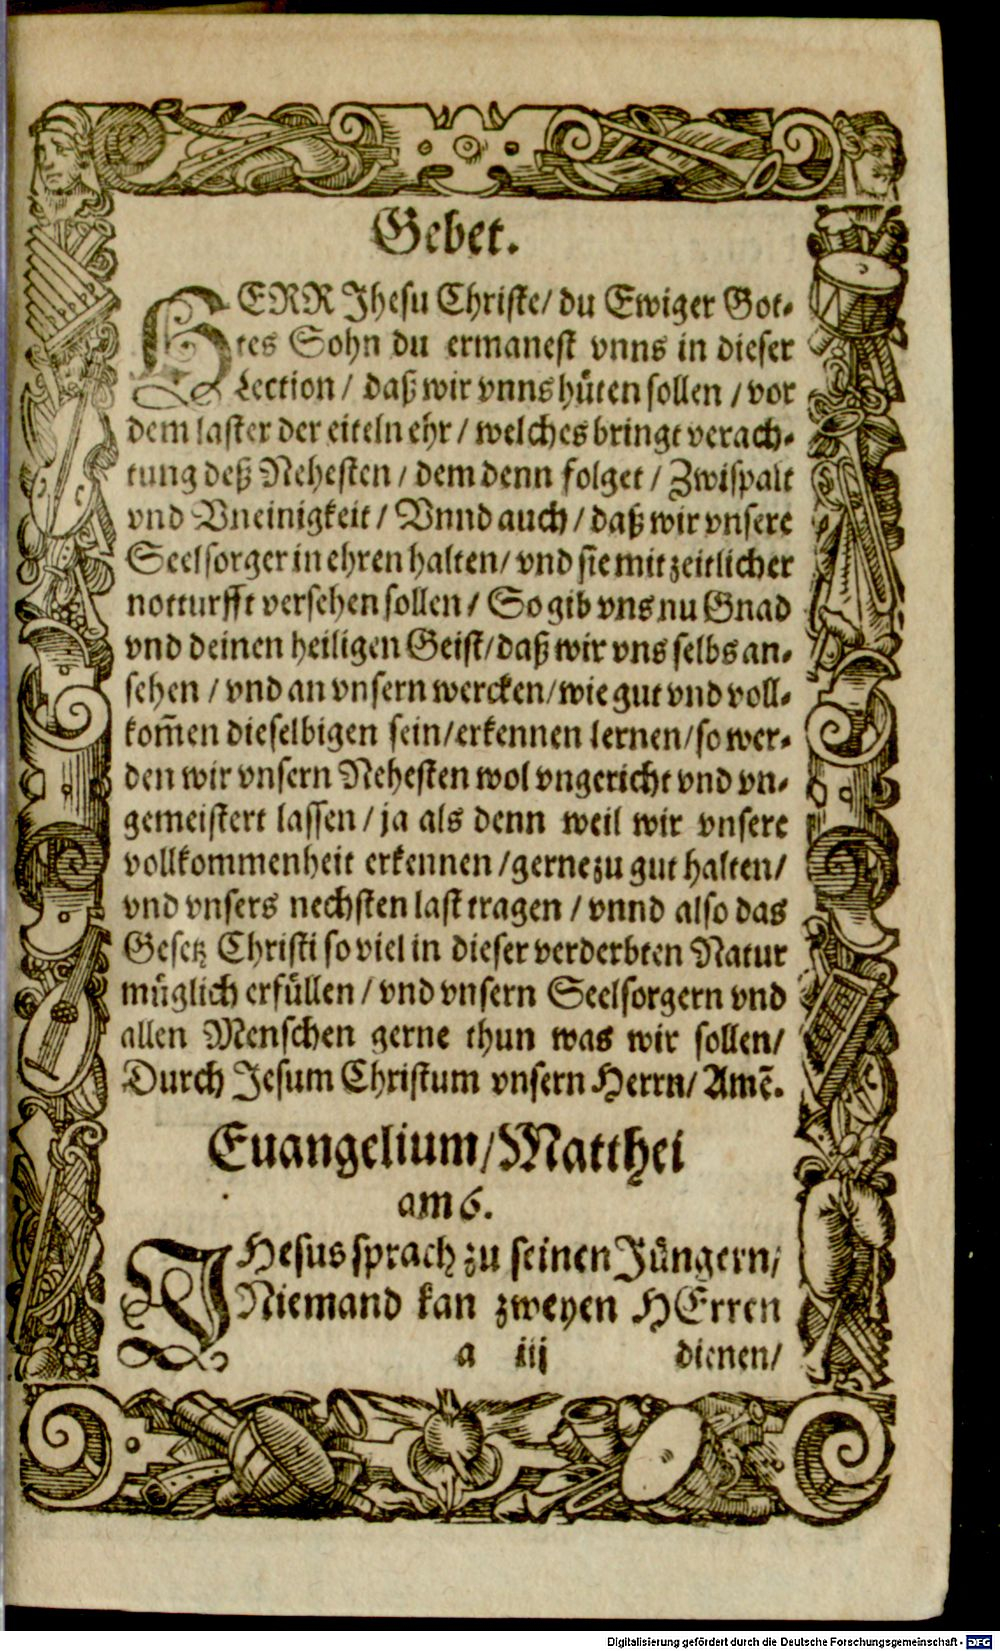 Gebet.
HERR Jhesu Christe/ du Ewiger Got-
tes Sohn du ermanest vnns in dieser
Lection / daß wir vnns hüten sollen / vor
dem laster der eiteln ehr / welches bringt verach-
tung deß Nehesten / dem denn folget / Zwispalt
vnd Vneinigkeit / Vnnd auch / daß wir vnsere
Seelsorger in ehren halten/ vnd sie mit zeitlicher
notturfft versehen sollen / So gib vns nu Gnad
vnd deinen heiligen Geist/ daß wir vns selbs an-
sehen / vnd an vnsern wercken/ wie gut vnd voll-
kom̃en dieselbigen sein/ erkennen lernen/ so wer-
den wir vnsern Nehesten wol vngericht vnd vn-
gemeistert lassen / ja als denn weil wir vnsere
vollkommenheit erkennen / gerne zu gut halten/
vnd vnsers nechsten last tragen / vnnd also das
Gesetz Christi so viel in dieser verderbten Natur
müglich erfüllen / vnd vnsern Seelsorgern vnd
allen Menschen gerne thun was wir sollen/
Durch Jesum Christum vnsern Herrn/ Amẽ.
Euangelium/ Matthei
am 6.
JHesus sprach zu seinen Jüngern/
Niemand kan zweyen HErren
a iij dienen/
Digitalisierung gefördert durch die Deutsche Forschungsgemeinschaft - DFG